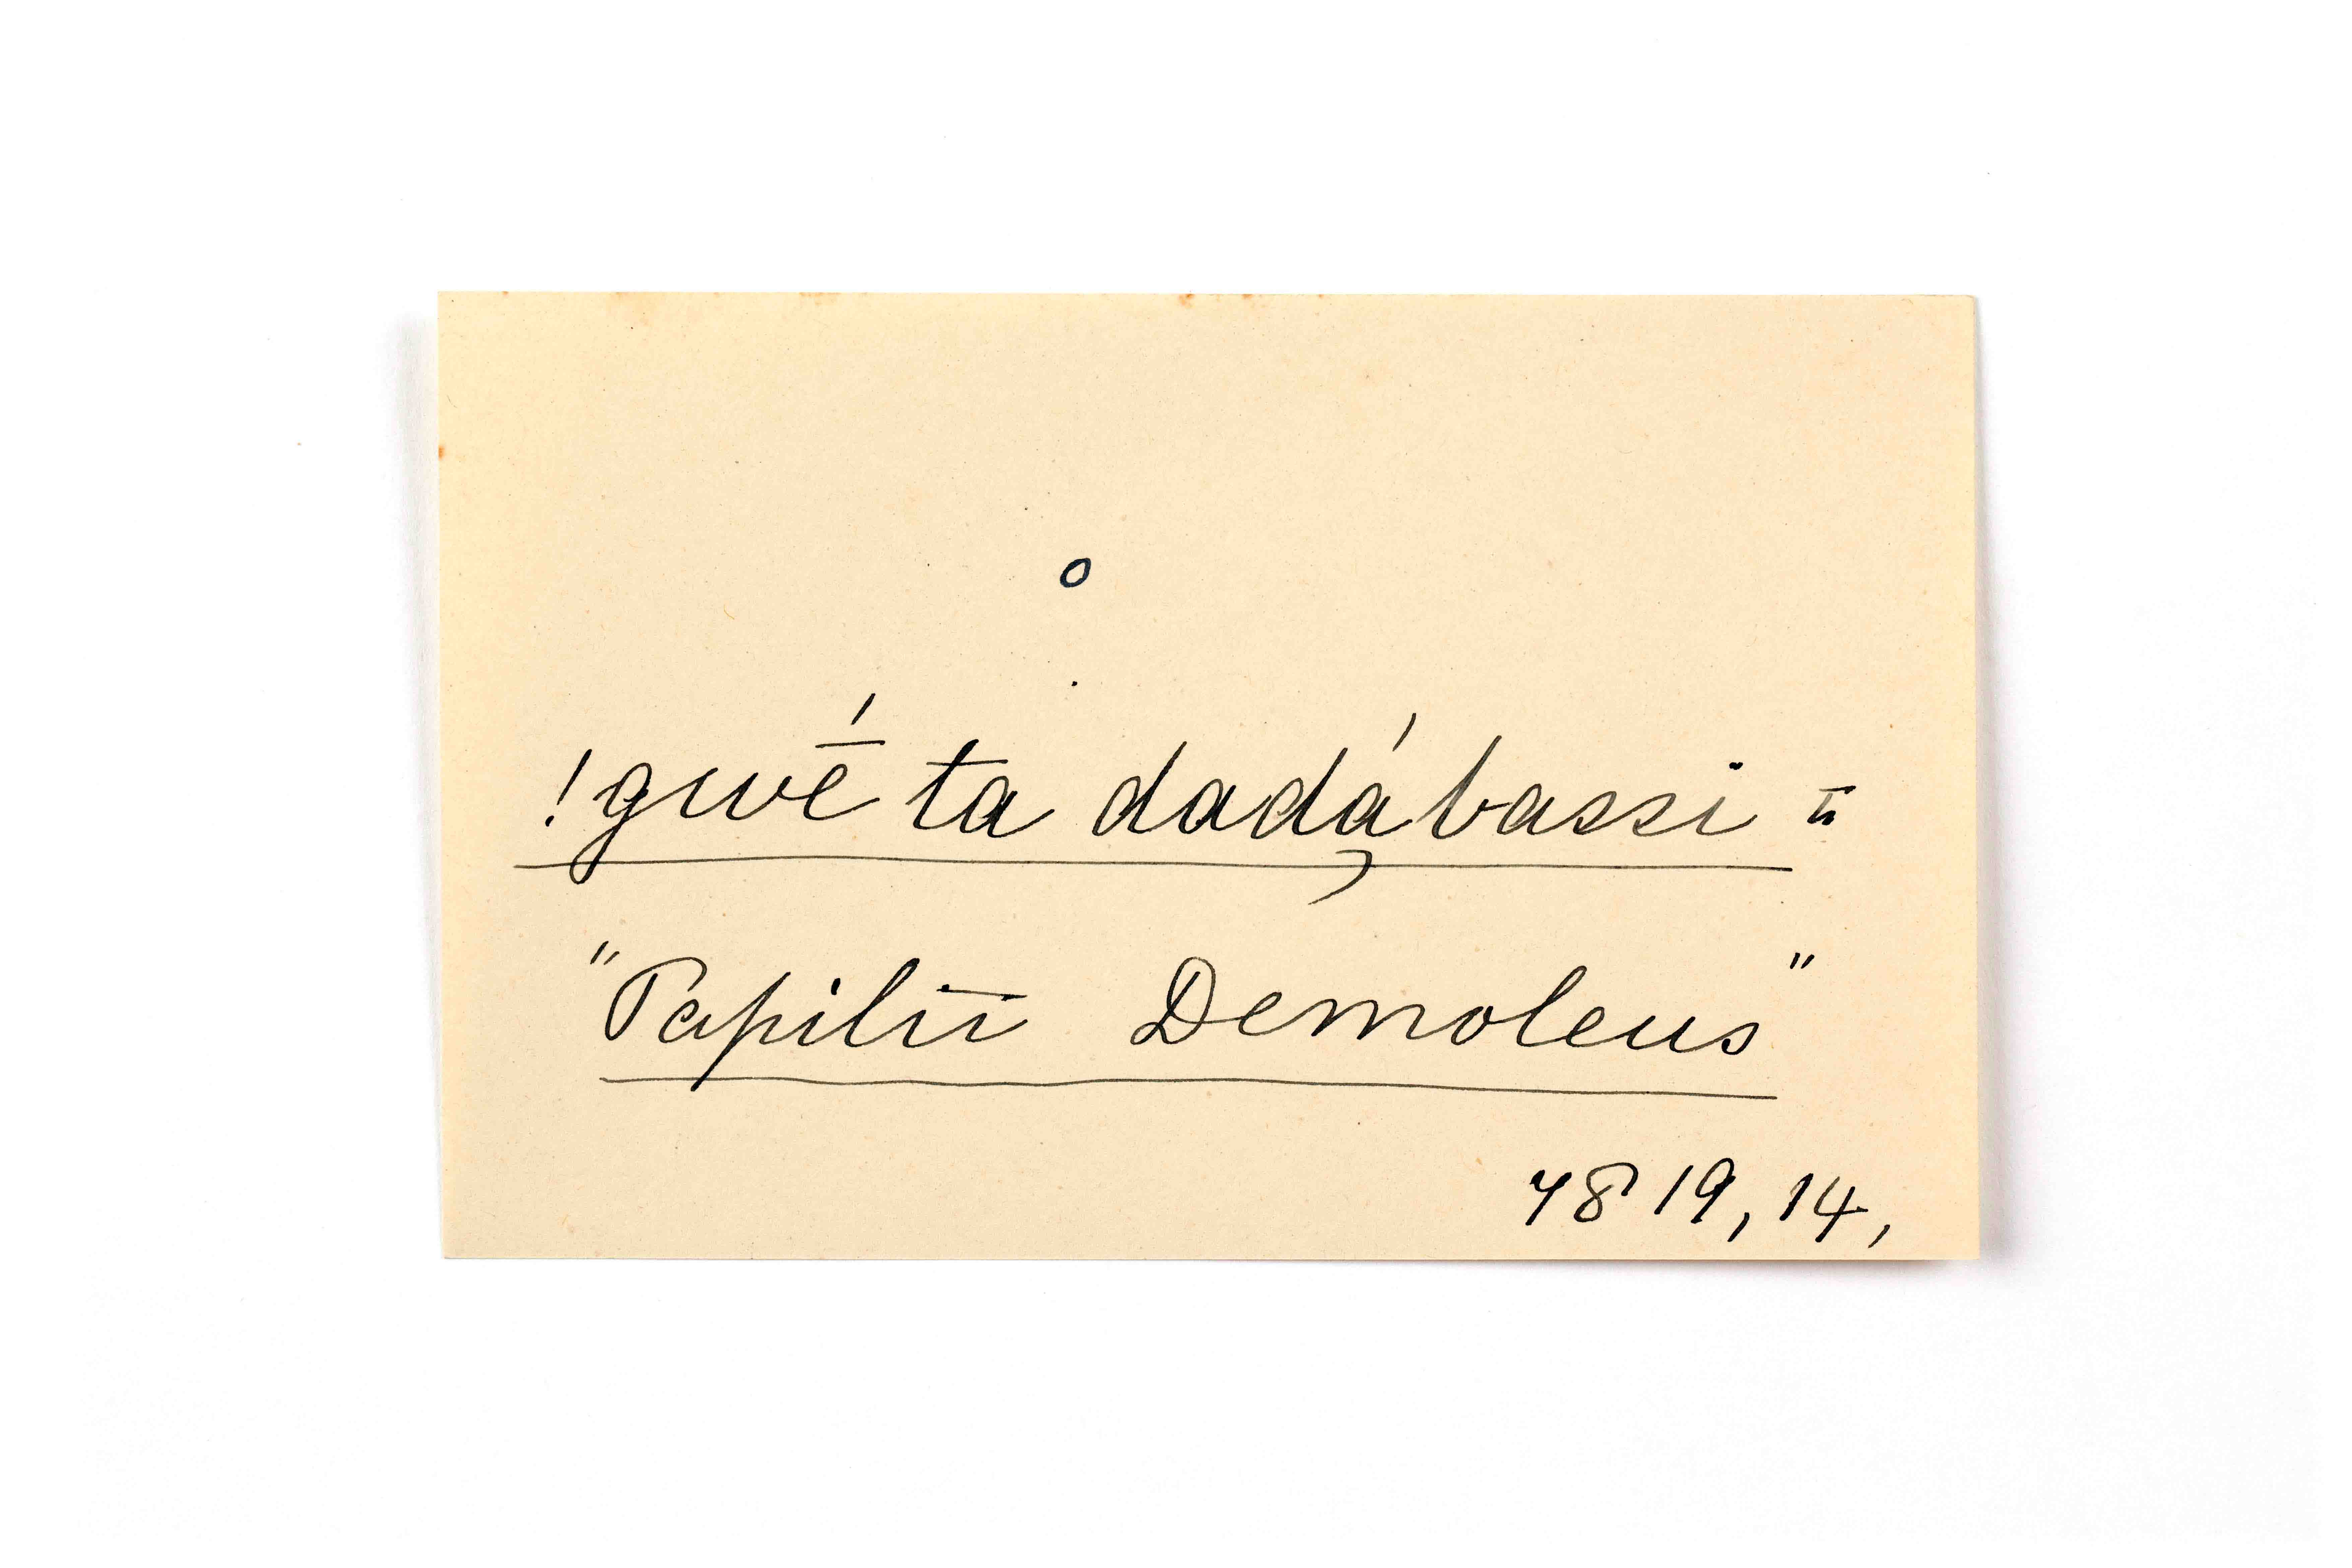 o
!gwḗ ta dadábassi =
"Papilii Demoleus"
7819, 14,